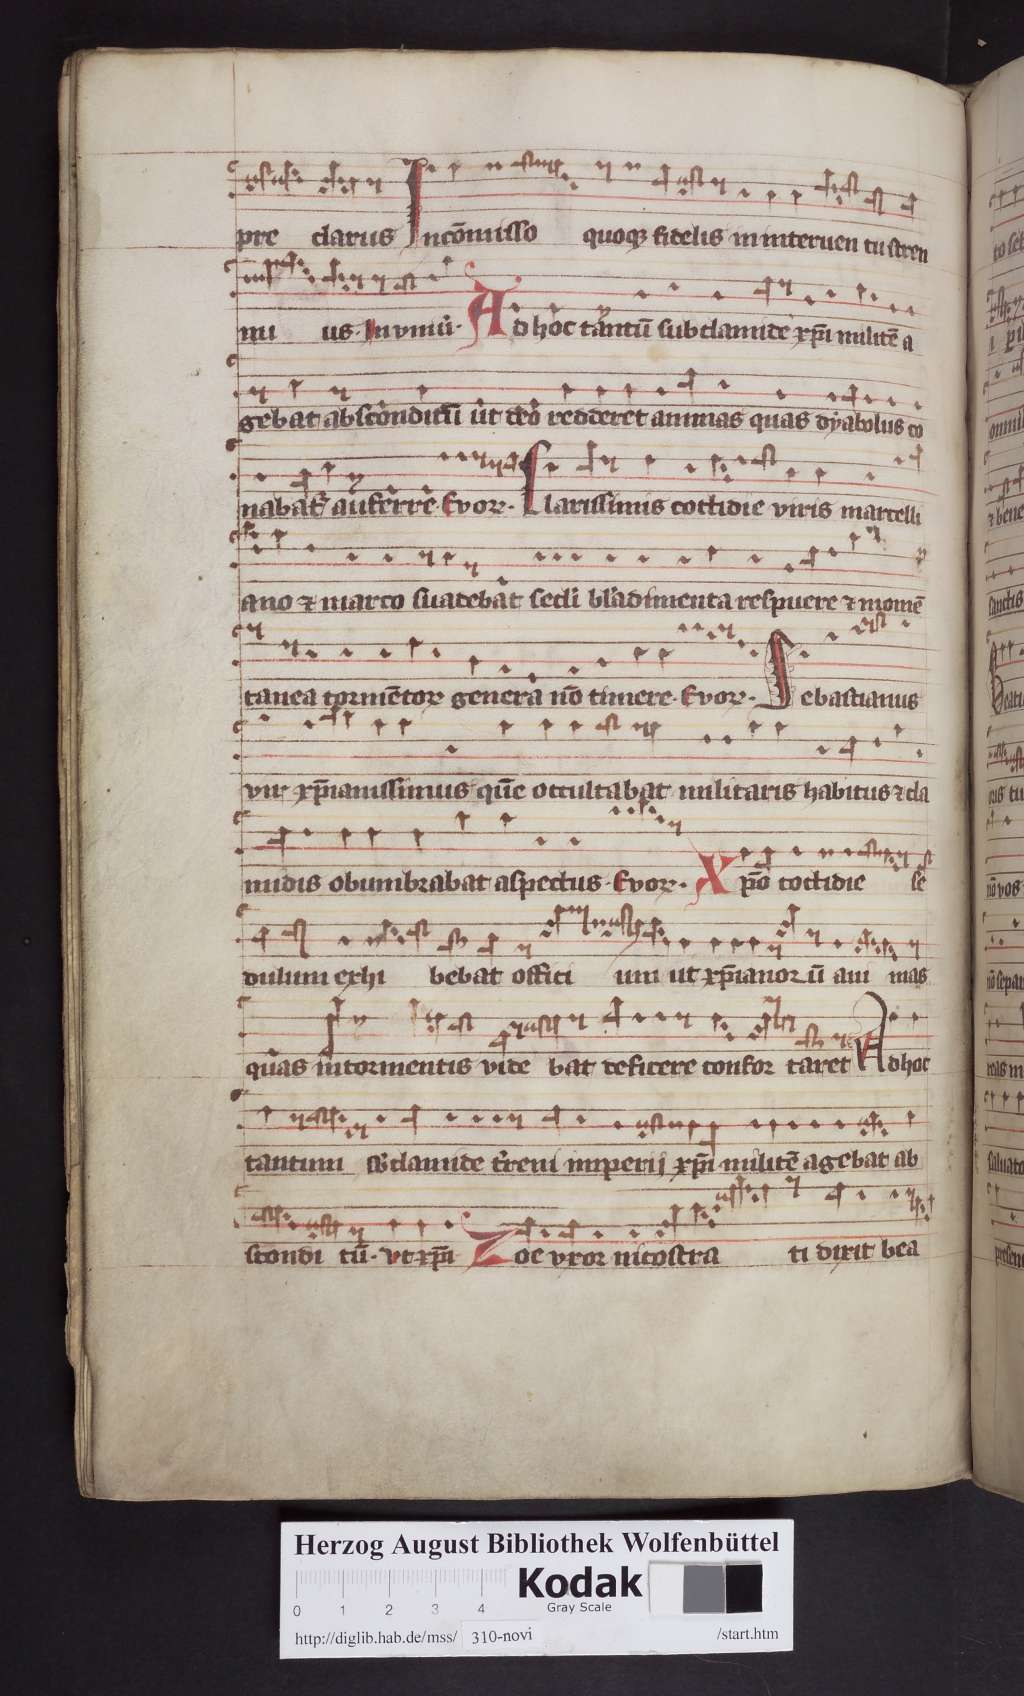 pre clarus Incōmisso quoqꝫ fidelis in interuen tu stren
nu us. In vniū. Ad hoc tantū sub clamide xp̄i militē a
gebat absconditū ut deo redderet animas quas dyabolus co
nabat᷑ auferre. Evoꝛ. Clarissimis cottidie viris marcelli
ano ⁊ marco suadebat secli bladimenta respuere ⁊ momē
tanea tormētoꝝ genera nō timere. Evoꝛ. Sebastianus
vir xp̄ianissimus quē occultabat militaris habitus ⁊ cla
midis obumbrabat aspectus. Evoꝛ. Xp̄o cottidie se
dulum exhi bebat offici um ut xp̄ianoꝝ ū ani mas
quas in tormentis vide bat deficere confor taret Ad hoc
tantum sb clamide t̄reni imperij xp̄i militē agebat ab
scondi tū. vt xp̄i Zoe vxor nicostra ti dixit bea
Herzog August Bibliothek Wolfenbüttel
Kodak
Gray Scale
0 1 2 3 4
http://diglib.hab.de/mss/ 310-novi /start.htm